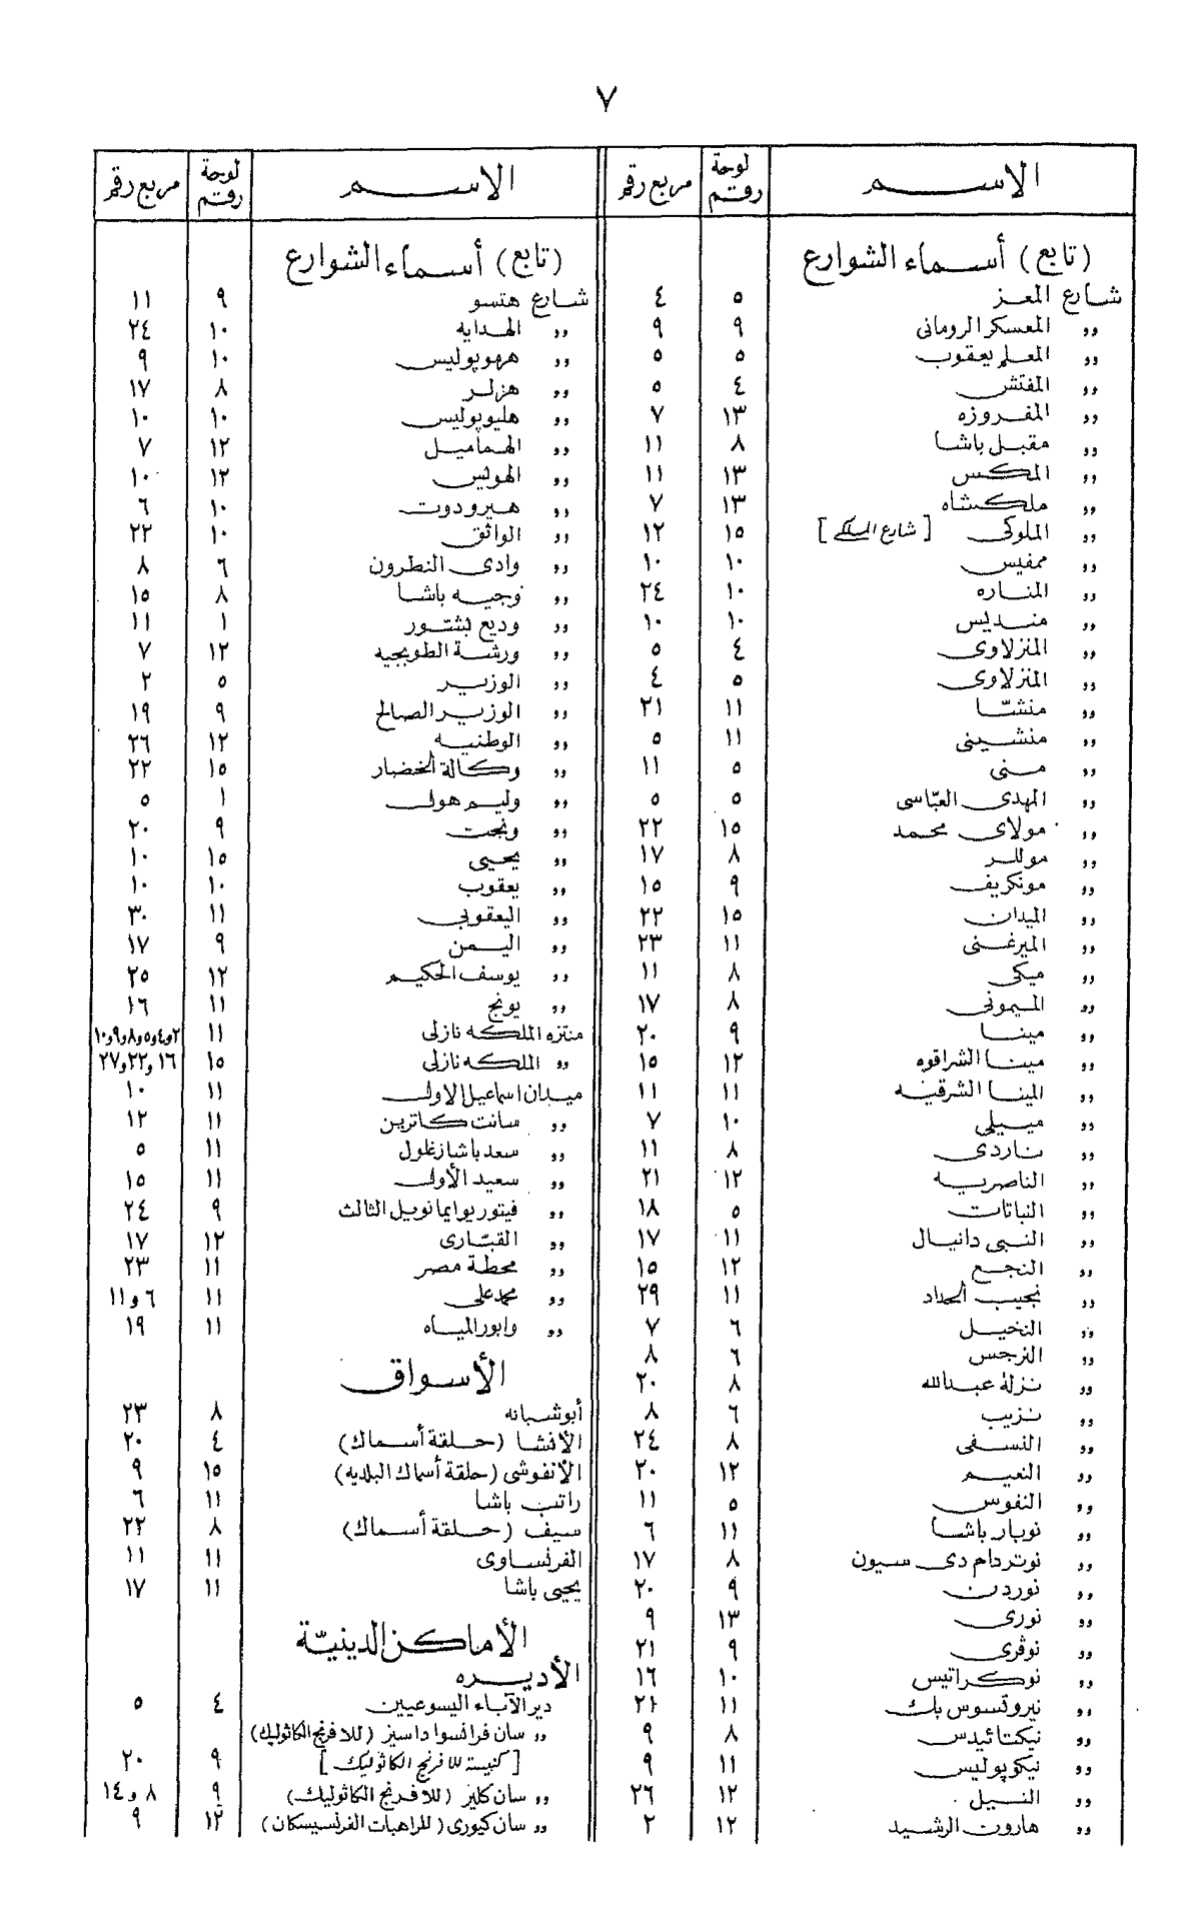 ٧
الاسـم لوحة رقم مربع رقم
(تابع) أسماء الشوارع
شارع المعز ٥ ٤
وو المعسكر الرومانى ٩ ٩
وو المعلم يعقوب ٥ ٥
وو المفتش ٤ ٥
وو المفروزه ١٣ ٧
وو مقبل باشا ٨ ١١
وو المكس ١٣ ١١
وو ملكشاه ١٣ ٧
وو الملوكى [شارع الملكى] ١٥ ١٢
وو ممفيس ١٠ ١٠
وو المناره ١٠ ٢٤
وو منديس ١٠ ١٠
وو المنزلاوى ٤ ٥
وو المنزلاوى ٥ ٤
وو منشّا ١١ ٢١
وو منشينى ١١ ٥
وو منى ٥ ١١
وو المهدى العبّاسى ٥ ٥
وو مولاى محمد ١٥ ٢٢
وو موللر ٨ ١٧
وو مونكريف ٩ ١٥
وو الميدان ١٥ ٢٢
وو الميرغنى ١١ ٢٣
وو ميكى ٨ ١١
وو الميمونى ٨ ١٧
وو مينا ٩ ٢٠
وو مينا الشراقوه ١٢ ١٥
وو المينا الشرقيه ١١ ١١
وو ميبلى ١٠ ٧
وو ناردى ٨ ١١
وو الناصريه ١٢ ٢١
وو النباتات ٥ ١٨
وو النبى دانيال ١١ ١٧
وو النجع ١٢ ١٥
وو نجيب الحداد ١١ ٢٩
وو النخيل ٦ ٧
وو النرجس ٦ ٨
وو نزلة عبدالله ٨ ٢٠
وو نزيب ٦ ٨
وو النسفى ٨ ٢٤
وو النعيم ١٢ ٢٠
وو النفوس ٥ ١١
وو نوبار باشا ١١ ٦
وو نوتردام دى سيون ٨ ١٧
وو نوردن ٩ ٢٠
وو نورى ١٣ ٩
وو نوڤرى ٩ ٢١
وو نوكراتيس ١٠ ١٦
وو نيروتسوس بك ١١ ٢١
وو نيكتائيدس ٨ ٩
وو نيكوپوليس ١١ ٩
وو النيل ١٢ ٢٦
وو هارون الرشيد ١٢ ٢
الاسـم لوحة رقم مربع رقم
(تابع) أسماء الشوارع
شارع هتسو ٩ ١١
وو الهدايه ١٠ ٢٤
وو هرموپوليس ١٠ ٩
وو هزلر ٨ ١٧
وو هليوپوليس ١٠ ١٠
وو الهماميل ١٢ ٧
وو الهوليس ١٢ ١٠
وو هيرودوت ١٠ ٦
وو الواثق ١٠ ٢٢
وو وادى النطرون ٦ ٨
وو وجيه باشا ٨ ١٥
وو وديع بشّور ١ ١١
وو ورشة الطوبجيه ١٢ ٧
وو الوزير ٥ ٢
وو الوزير الصالح ٩ ١٩
وو الوطنيه ١٢ ٢٦
وو وكالة الخضار ١٥ ٢٢
وو وليم هول ١ ٥
وو ونجت ٩ ٢٠
وو يحيى ١٥ ١٠
وو يعقوب ١٠ ١٠
وو اليعقوبى ١١ ٣٠
وو اليمن ٩ ١٧
وو يوسف الحكيم ١٢ ٢٥
وو يونج ١١ ١٦
منتزه الملكه نازلى ١١ ٢و٤و٥و٨و٩و١٠
وو الملكه نازلى ١٥ ١٦ و٢٢و٢٧
ميدان اسماعيل الاول ١١ ١٠
وو سانت كاترين ١١ ١٢
وو سعد باشا زغلول ١١ ٥
وو سعيد الأول ١١ ١٥
وو فيتوريو ايمانويل الثالث ٩ ٢٤
وو القبّارى ١٢ ١٧
وو محطة مصر ١١ ٢٣
وو محمد على ١١ ٦ و١١
وو وابور المياه ١١ ١٩
الأسواق
أبوشبانه ٨ ٢٣
الأنشا (حلقة أسماك) ٤ ٢٠
الأنفوشى (حلقة أسماك البلديه) ١٥ ٩
راتب باشا ١١ ٦
سيف (حلقة أسماك) ٨ ٢٢
الفرنساوى ١١ ١١
يحيى باشا ١١ ١٧
الأماكن الدينيّة
الأديره
دير الآباء اليسوعيين ٤ ٥
وو سان فرانسوا داسيز (للافرنج الكاثوليك)
[كنيسة للافرنج الكاثوليك] ٩ ٢٠
وو سان كلير (للافرنج الكاثوليك) ٩ ٨ و١٤
وو سان كيورى (للراهبات الفرنسيسكان) ١٢ ٩